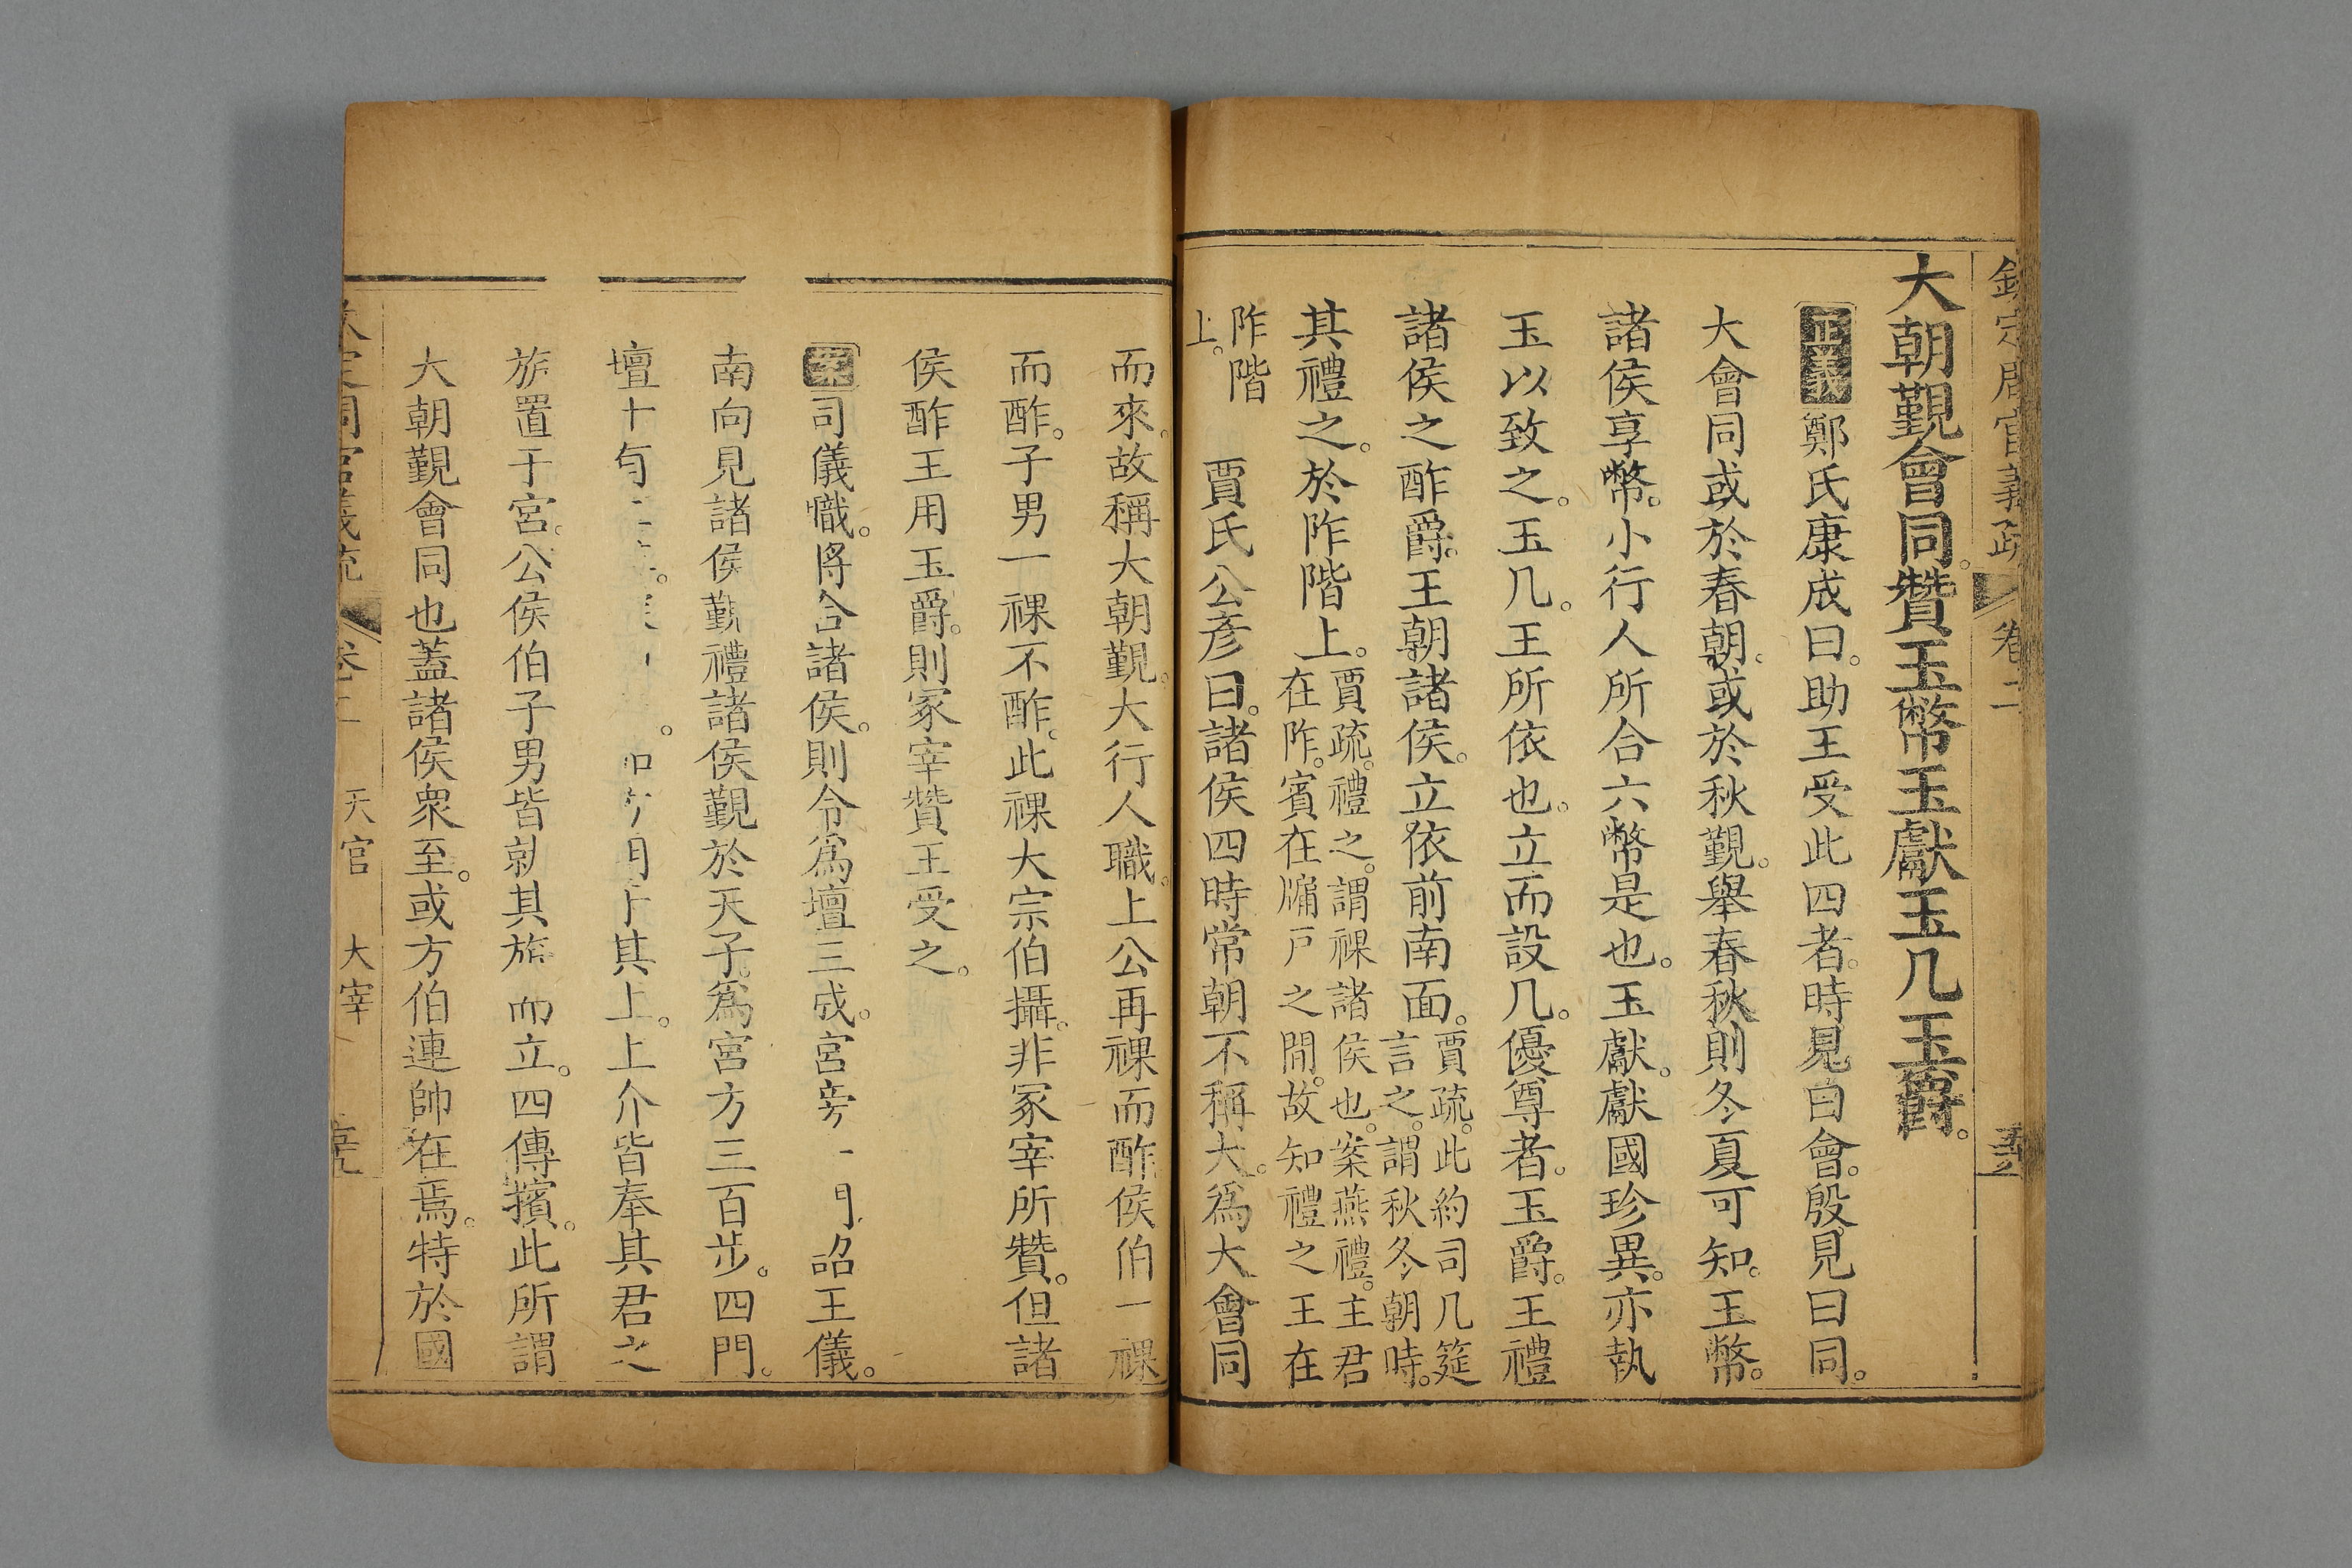 欽定周官義疏 卷二
大朝覲會同。贊玉幣玉獻玉几玉爵。
正義 鄭氏康成曰。助王受此四者。時見曰會。殷見曰同。
大會同或於春朝。或於秋覲。舉春秋則冬夏可知。玉幣。
諸侯享幣。小行人所合六幣是也。玉獻。獻國珍異。亦執
玉以致之。玉几。王所依也。立而設几。優尊者。玉爵。王禮
諸侯之酢爵。王朝諸侯。立依前南面。賈疏。此約司几筵言之。謂秋冬朝時。
其禮之。於阼階上。賈疏。禮之。謂祼諸侯也。案燕禮。主君在阼。賓在牖戸之間。故知禮之王在
阼階上。 賈氏公彦曰。諸侯四時常朝不稱大。爲大會同
而來。故稱大朝覲。大行人職。上公再祼而酢侯伯一祼
而酢。子男一祼不酢。此祼大宗伯攝。非冢宰所贊。但諸
侯酢王用玉爵。則冢宰贊王受之。
案 司儀職。將合諸侯。則令爲壇三成。宮旁 門 詔王儀。
南向見諸侯覲禮諸侯覲於天子。爲宮方三百步。四門。
壇十有 其上。上介皆奉其君之
旂置于宮。公侯伯子男皆就其旂而立。四傳擯。此所謂
大朝覲會同也蓋諸侯衆至。或方伯連帥在焉。特於國
天官 大宰